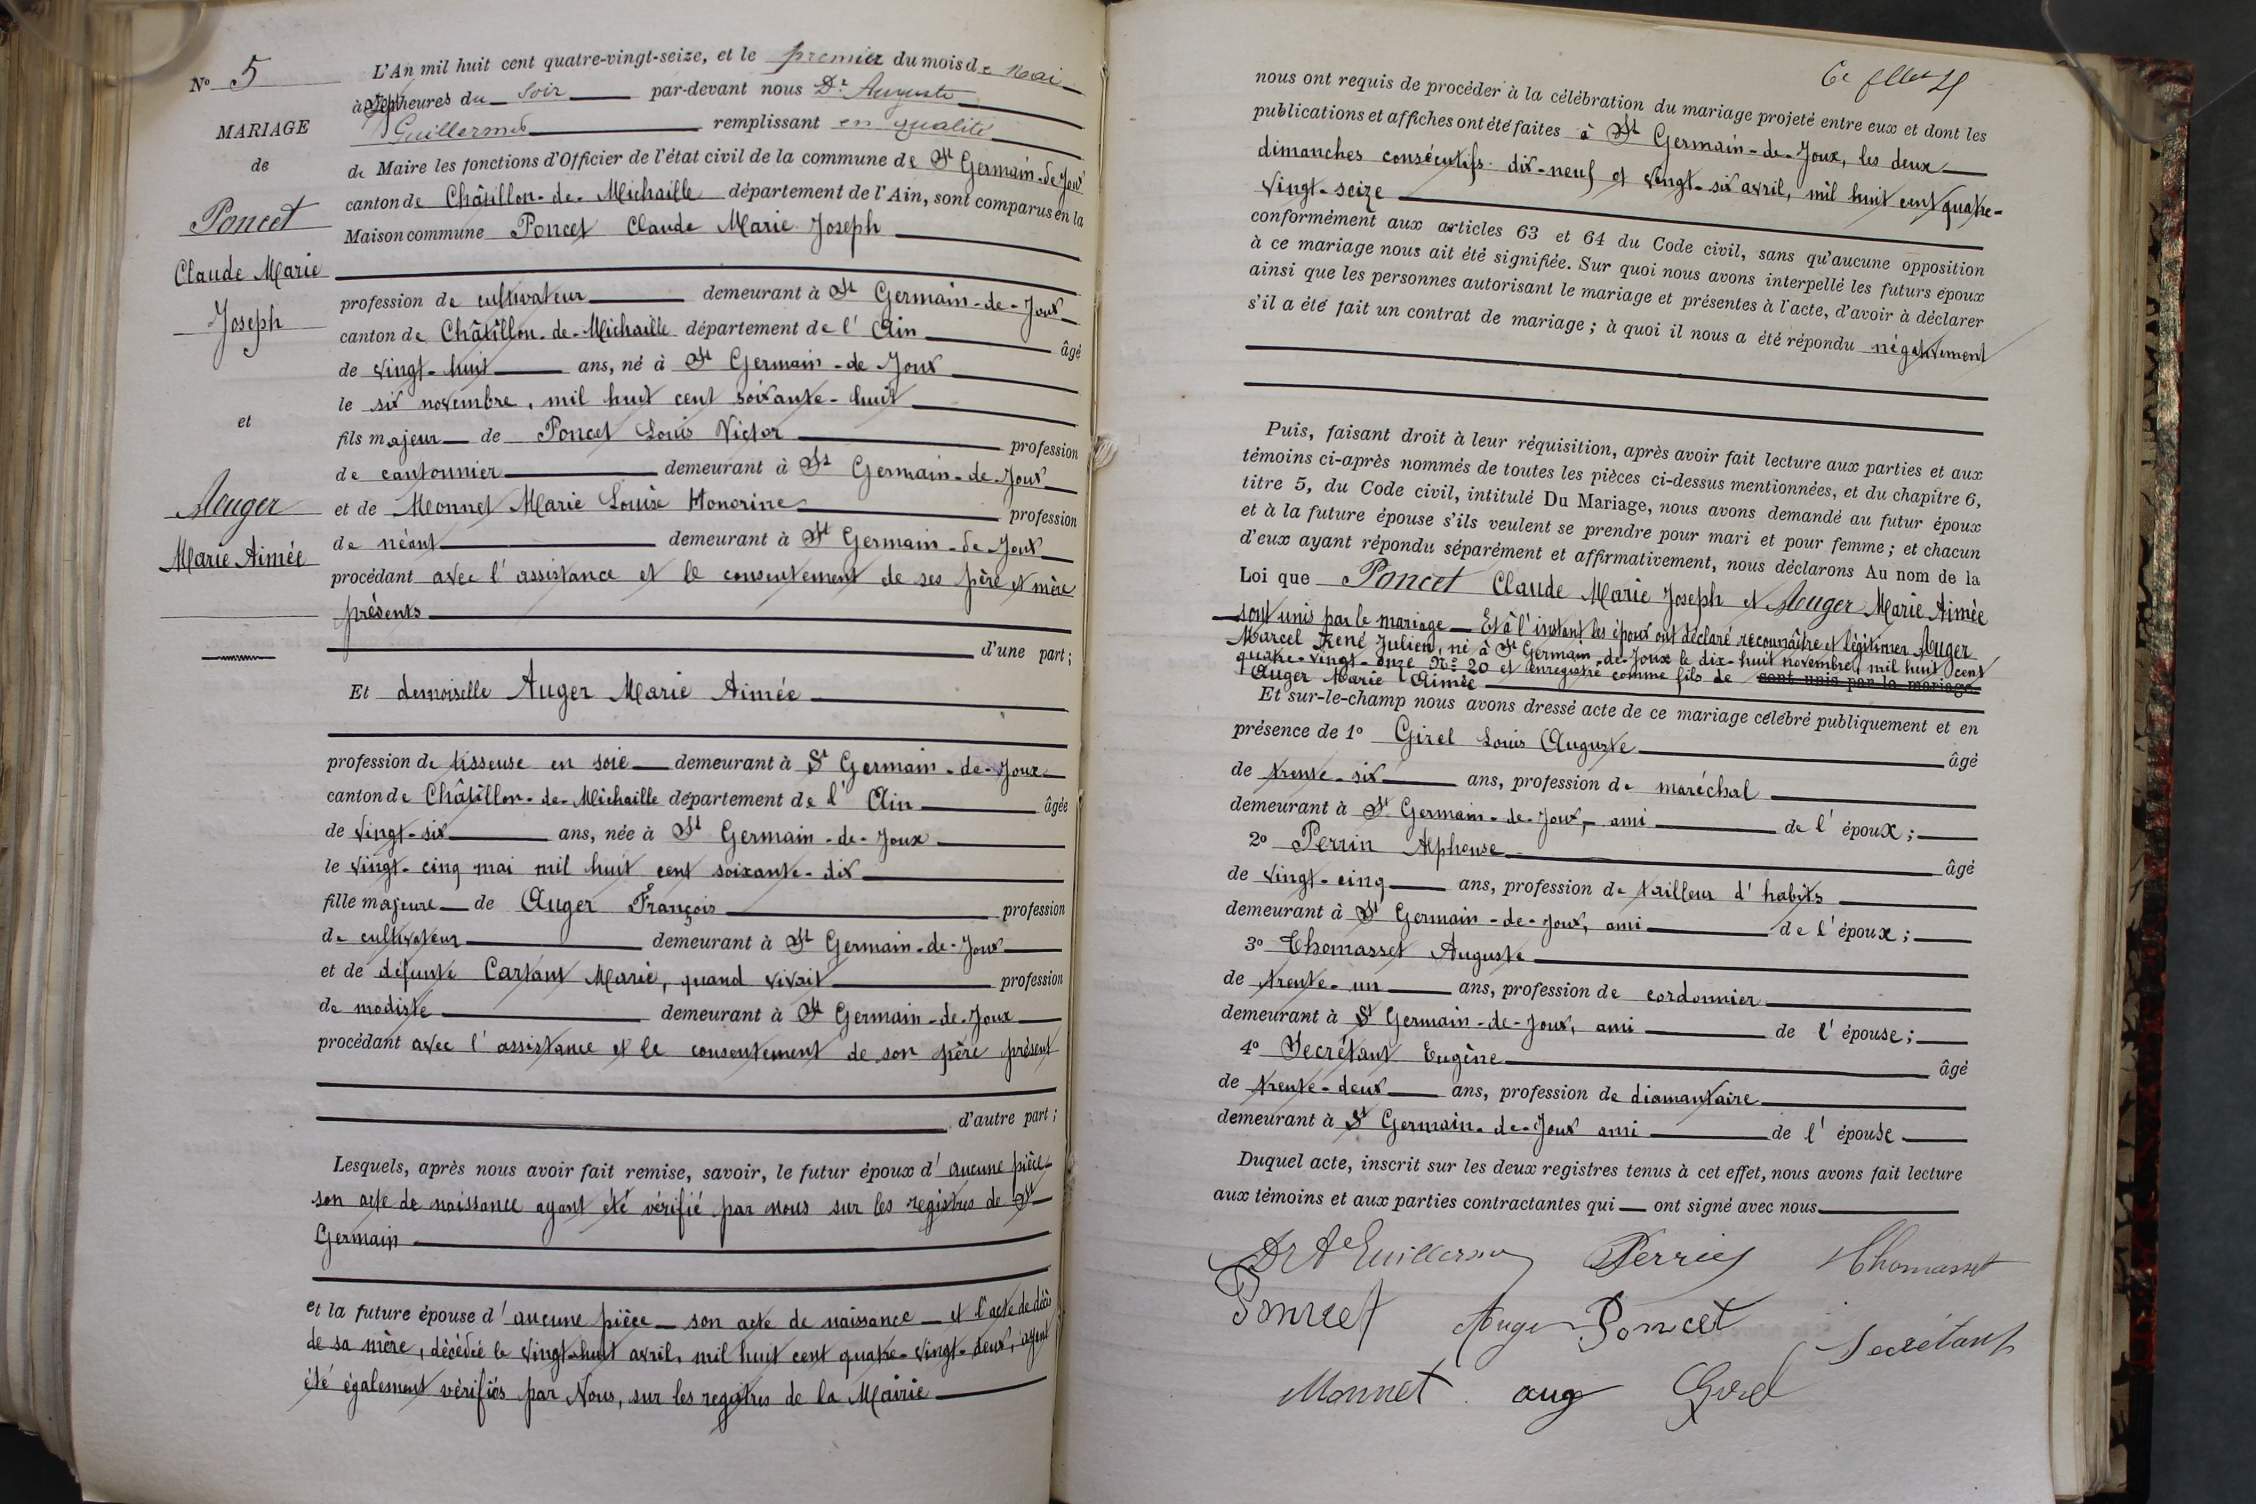 Nº 5
MARIAGE
de
Poncet
Claude Marie
Joseph
et
Auger
Marie Aimée
L'An mil huit cent quatre-vingt-seize, et le premier du mois de Mai
à sept heures du soir par-devant nous Dr Auguste
Guillermet remplissant en qualité
de Maire les fonctions d'Officier de l'état civil de la commune de St Germain-de-Joux
canton de Châtillon-de-Michaille département de l'Ain, sont comparus en la
Maison commune Poncet Claude Marie Joseph
profession de cultivateur demeurant à St Germain-de-Joux
canton de Châtillon-de-Michaille département de l'Ain âgé
de vingt-huit ans, né à St Germain-de Joux
le six novembre, mil huit cent soixante-huit
fils majeur de Poncet Louis Victor profession
de cantonnier demeurant à St Germain-de-Joux
et de Monnet Marie Louise Honorine profession
de néant demeurant à St Germain-de-Joux
procédant avec l'assistance et le consentement de ses père et mère
présents
d'une part;
Et demoiselle Auger Marie Aimée
profession de tisseuse en soie demeurant à St Germain-de-Joux
canton de Châtillon-de-Michaille département de l'Ain âgée
de vingt-six ans, née à St Germain-de-Joux
le vingt-cinq mai mil huit cent soixante-dix
fille majeure de Auger François profession
de cultivateur demeurant à St Germain-de-Joux
et de défunte Cartant Marie, quand vivait profession
de modiste demeurant à St Germain-de-Joux
procédant avec l'assistance et le consentement de son père présent
d'autre part;
Lesquels, après nous avoir fait remise, savoir, le futur époux d'aucune pièce
son acte de naissance ayant été vérifié par nous sur les registres de St
Germain
et la future épouse d'aucune pièce son acte de naissance et l'acte de décès
de sa mère, décédée le vingt-huit avril, mil huit cent quatre-vingt-deux, ayant
été également vérifiés par Nous, sur les registres de la Mairie
nous ont requis de procéder à la célébration du mariage projeté entre eux et dont les
publications et affiches ont été faites à St Germain-de-Joux, les deux
dimanches consécutifs dix-neuf et vingt-six avril, mil huit cent quatre-
vingt-seize
conformément aux articles 63 et 64 du Code civil, sans qu'aucune opposition
à ce mariage nous ait été signifiée. Sur quoi nous avons interpellé les futurs époux
ainsi que les personnes autorisant le mariage et présentes à l'acte, d'avoir à déclarer
s'il a été fait un contrat de mariage; à quoi il nous a été répondu négativement
Puis, faisant droit à leur réquisition, après avoir fait lecture aux parties et aux
témoins ci-après nommés de toutes les pièces ci-dessus mentionnées, et du chapitre 6,
titre 5, du Code civil, intitulé Du Mariage, nous avons demandé au futur époux
et à la future épouse s'ils veulent se prendre pour mari et pour femme; et chacun
d'eux ayant répondu séparément et affirmativement, nous déclarons Au nom de la
Loi que Poncet Claude Marie Joseph et Auger Marie Aimée
sont unis par le mariage Et à l'instant les époux ont déclaré reconnaître et légitimer Auger
Marcel René Julien, né à St Germain-de-Joux le dix-huit novembre, mil huit cent
quatre-vingt-onze Nº 20 et enregistré comme fils de sont unis par le mariage
Auger Marie Aimée
Et sur-le-champ nous avons dressé acte de ce mariage célébré publiquement et en
présence de 1º Girel Louis Auguste âgé
de trente-six ans, profession de maréchal
demeurant à St Germain-de-Joux, ami de l'époux;
2º Perrin Alphonse âgé
de vingt-cinq ans, profession de tailleur d'habits
demeurant à St Germain-de-Joux, ami de l'époux;
3º Thomasset Auguste
de trente-un ans, profession de cordonnier
demeurant à St Germain-de-Joux, ami de l'épouse;
4º Secrétant Eugène âgé
de trente-deux ans, profession de diamantaire
demeurant à St Germain-de-Joux ami de l'épouse
Duquel acte, inscrit sur les deux registres tenus à cet effet, nous avons fait lecture
aux témoins et aux parties contractantes qui ont signé avec nous
Perrin Thomasset
Poncet Auger Poncet Secrétant
Monnet aug Girel